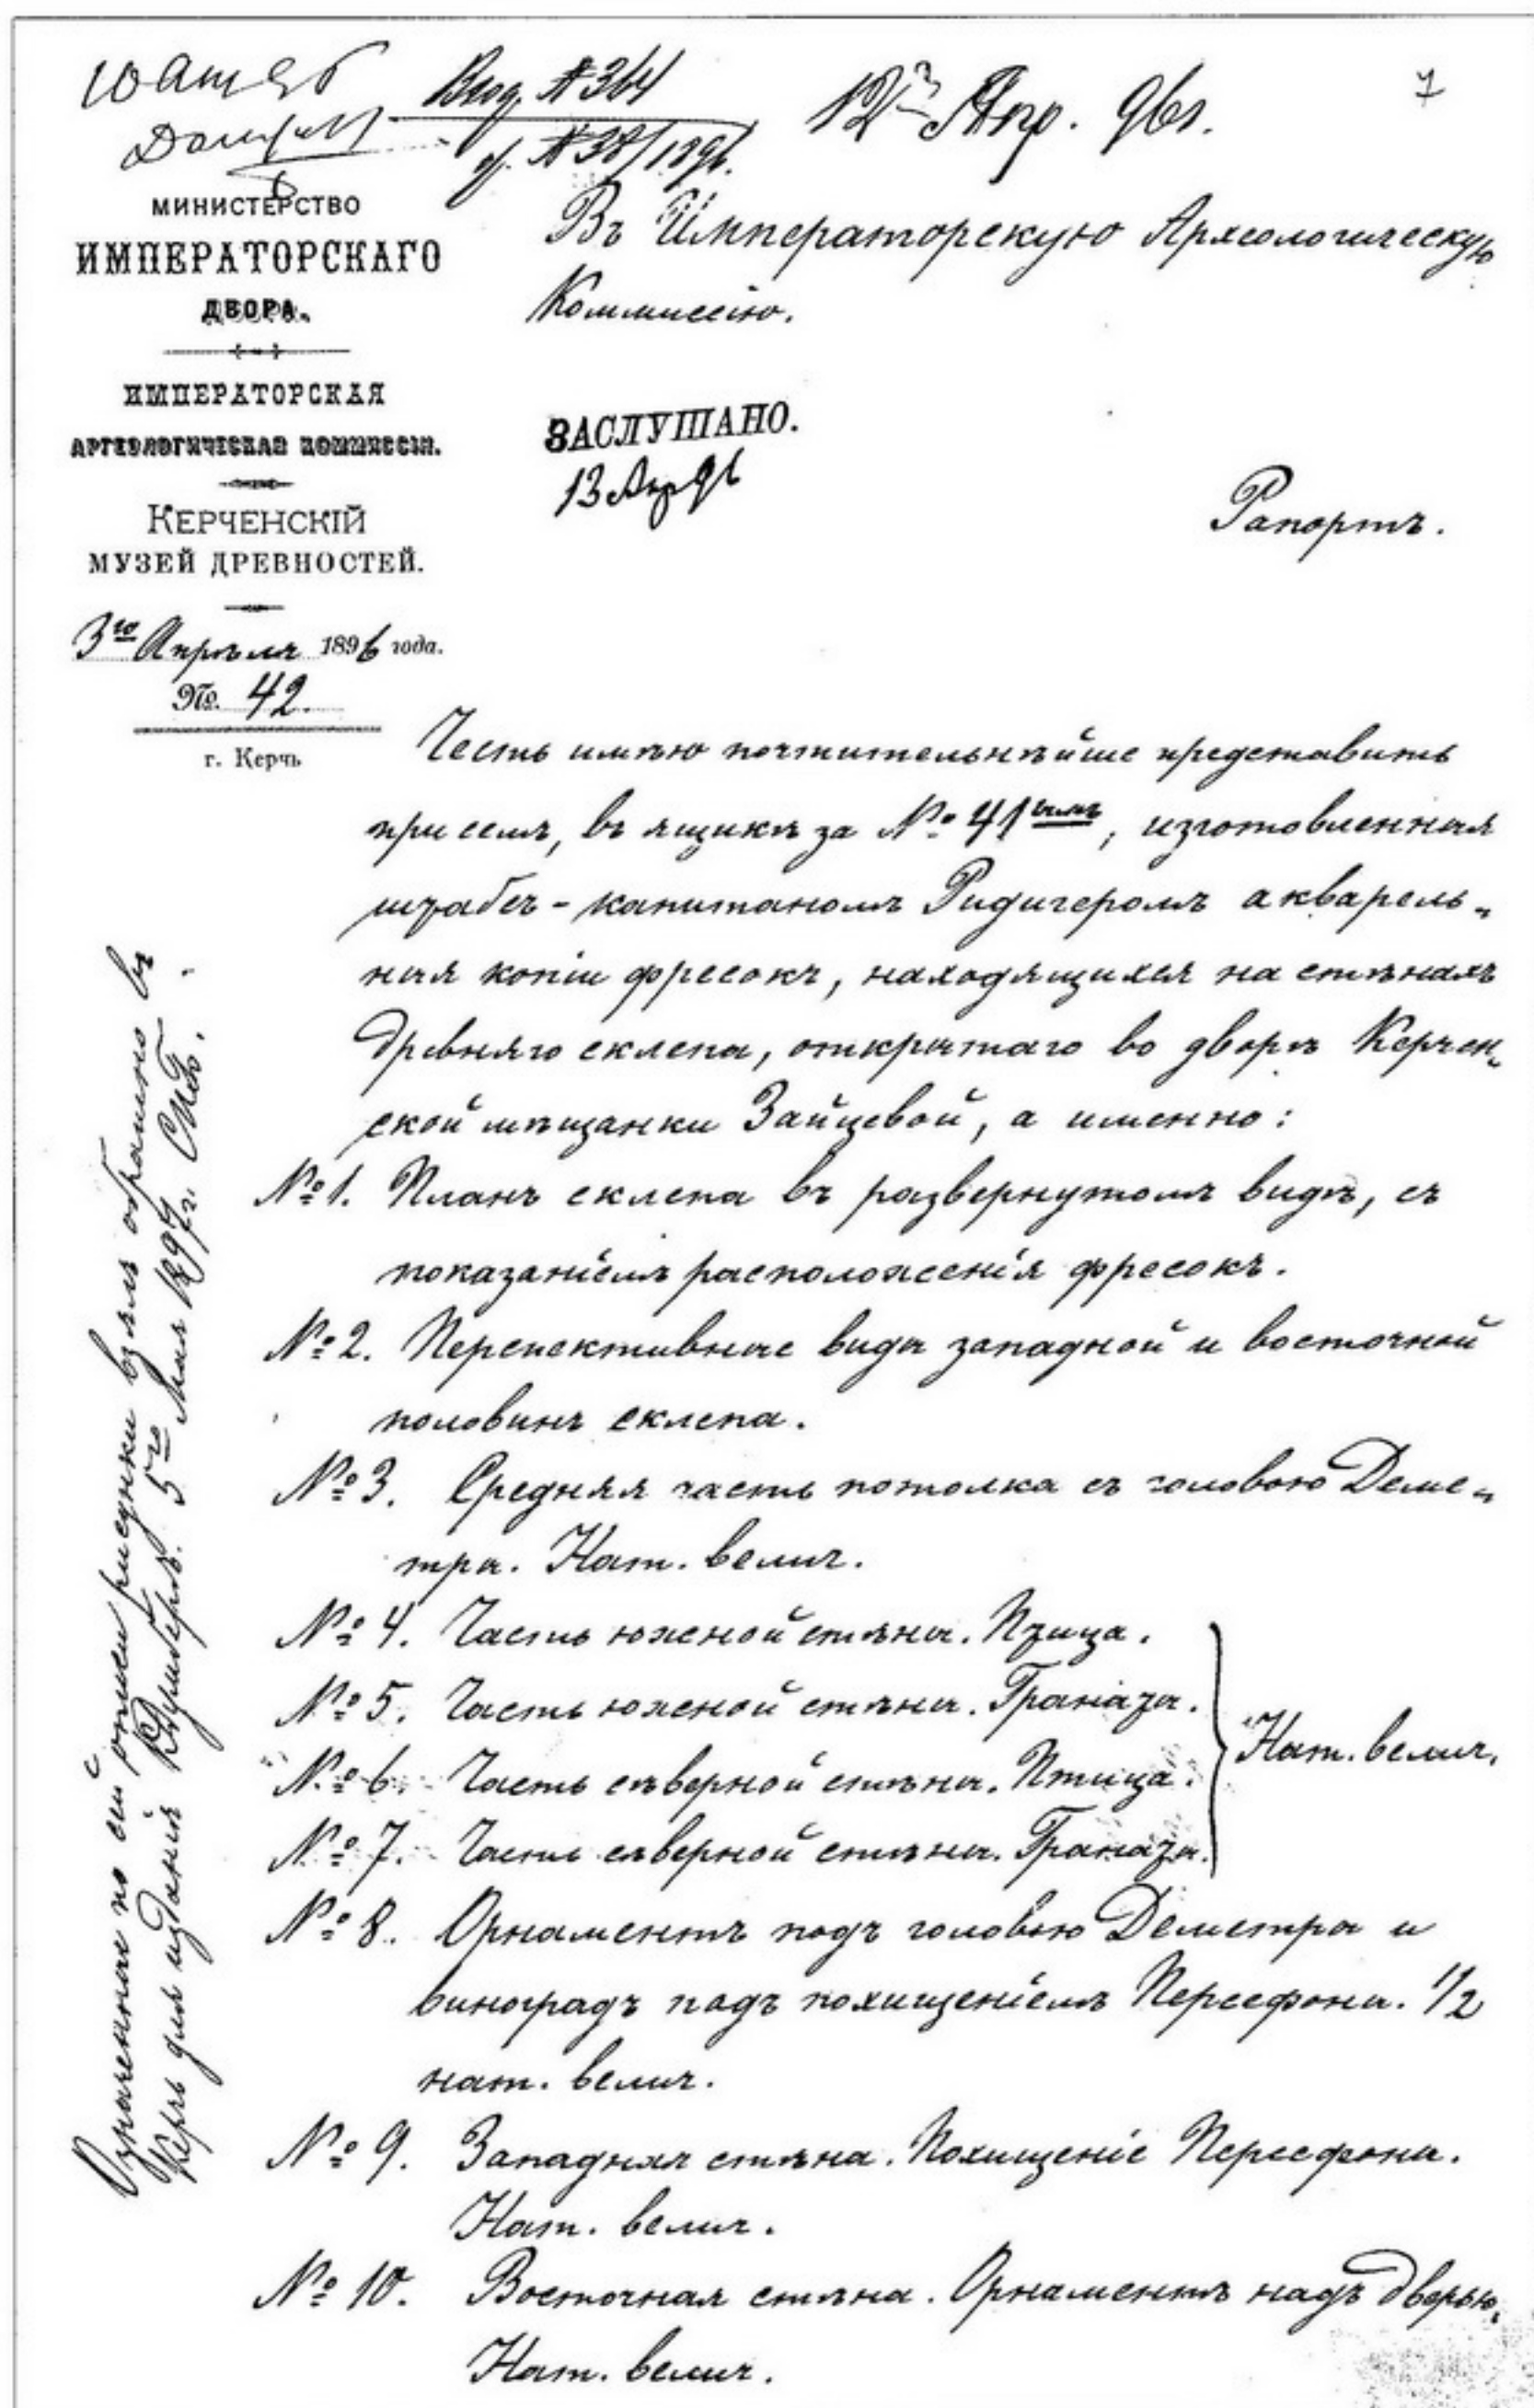 Вход. № 364
д. № 38/1896.
12го Апр. 96 г.
7
МИНИСТЕРСТВО
ИМПЕРАТОРСКАГО
ДВОРА.
ИМПЕРАТОРСКАЯ
АРХЕОЛОГИЧЕСКАЯ КОММИССІЯ.
КЕРЧЕНСКІЙ
МУЗЕЙ ДРЕВНОСТЕЙ.
3го Апрѣля 1896 года.
№ 42.
г. Керчь
Въ Императорскую Археологическую
Коммиссію.
ЗАСЛУШАНО.
13 Апр 96
Рапортъ.
Честь имѣю почтительнѣйше представить
при семъ, въ ящикѣ за № 41ымъ, изготовленныя
штабсъ-капитаномъ Ридигеромъ акварель-
ныя копіи фресокъ, находящихся на стѣнахъ
древняго склепа, открытаго во дворѣ Керчен-
ской мѣщанки Зайцевой, а именно:
№ 1. Планъ склепа въ развернутомъ видѣ, съ
показаніемъ расположенія фресокъ.
№ 2. Перспективные виды западной и восточной
половинъ склепа.
№ 3. Средняя часть потолка съ головою Деме-
тры. Нат. велич.
№ 4. Часть южной стѣны. Птица.
№ 5. Часть южной стѣны. Гранаты.
№ 6. Часть сѣверной стѣны. Птица.
№ 7. Часть сѣверной стѣны. Гранаты.
Нат. велич.
№ 8. Орнаментъ подъ головою Деметры и
виноградъ подъ похищеніемъ Персефоны. 1/2
нат. велич.
№ 9. Западная стѣна. Похищеніе Персефоны.
Нат. велич.
№ 10. Восточная стѣна. Орнаментъ надъ дверью.
Нат. велич.
Означенные по сей описи рисунки взялъ обратно въ
Керчь для изданія КДумбергъ. 5го Мая 1897 г. СПб.